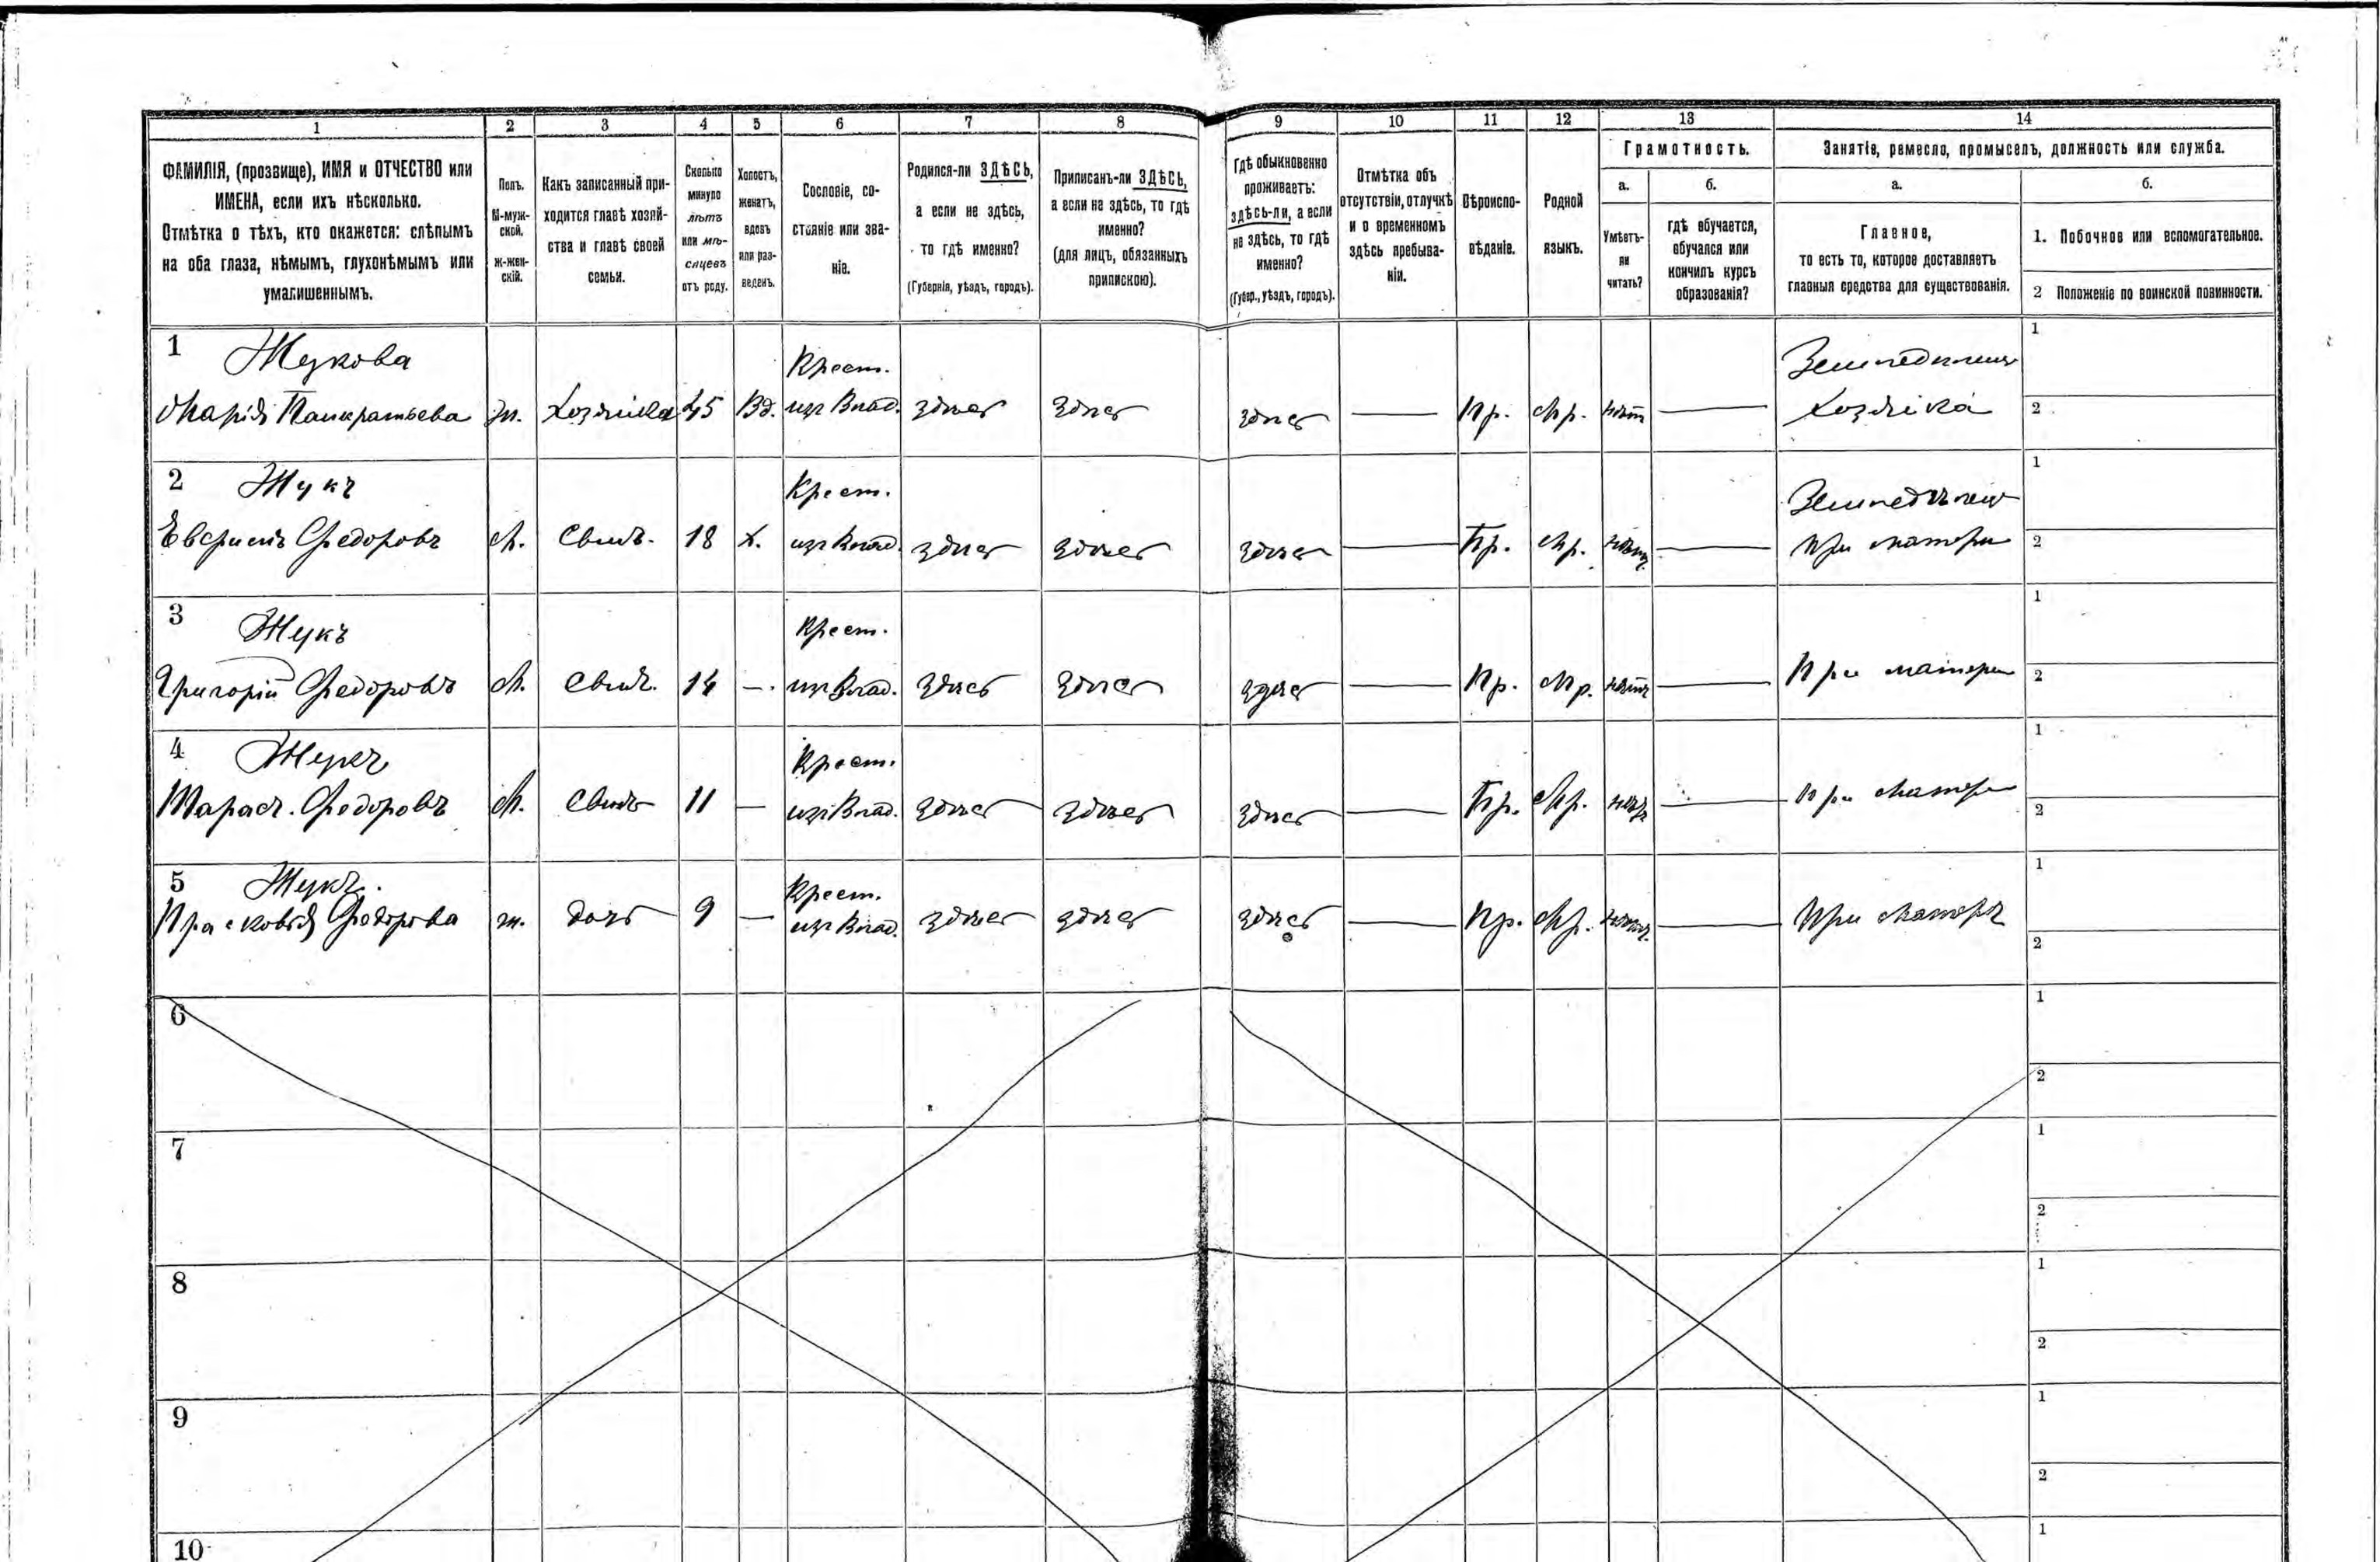 1 2 3 4 5 6 7 8 9 10 11 12 13 14
ФАМИЛІЯ, (прозвище), ИМЯ и ОТЧЕСТВО или
ИМЕНА, если ихъ нѣсколько.
Отмѣтка о тѣхъ, кто окажется: слѣпымъ
на оба глаза, нѣмымъ, глухонѣмымъ или
умалишеннымъ.
Полъ.
М-муж-
ской.
ж-жен-
скій.
Какъ записанный при-
ходится главѣ хозяй-
ства и главѣ своей
семьи.
Сколько
минуло
лѣтъ
или мѣ-
сяцевъ
отъ роду.
Холостъ,
женатъ,
вдовъ
или раз-
веденъ.
Сословіе, со-
стояніе или зва-
ніе.
Родился-ли ЗДѢСЬ,
а если не здѣсь,
то гдѣ именно?
(Губернія, уѣздъ, городъ).
Приписанъ-ли ЗДѢСЬ,
а если не здѣсь, то гдѣ
именно?
(для лицъ, обязанныхъ
припискою).
Гдѣ обыкновенно
проживаетъ:
здѣсь-ли, а если
не здѣсь, то гдѣ
именно?
(Губер., уѣздъ, городъ).
Отмѣтка объ
отсутствіи, отлучкѣ
и о временномъ
здѣсь пребыва-
ніи.
Вѣроиспо-
вѣданіе.
Родной
языкъ.
Грамотность.
а.
Умѣетъ-
ли
читать?
б.
гдѣ обучается,
обучался или
кончилъ курсъ
образованія?
Занятіе, ремесло, промыселъ, должность или служба.
а.
Главное,
то есть то, которое доставляетъ
главныя средства для существованія.
б.
1. Побочное или вспомогательное.
2 Положеніе по воинской повинности.
1 Жукова Крест. Земледѣлица 1
Марія Панкратьева ж. Хозяйка 45 Вд. изъ Влад. здѣсь здѣсь здѣсь — Пр. Мр. нѣтъ — Хозяйка 2
2 Жукъ Крест. Земледѣлец 1
Евфимъ Федоровъ М. Сынъ. 18 х. изъ Влад. здѣсь здѣсь здѣсь — Пр. Мр. нѣтъ — При матери 2
3 Жукъ Крест. 1
Григорій Федоровъ М. Сынъ. 14 —. изъ Влад. здѣсь здѣсь здѣсь — Пр. Мр. нѣтъ — При матери 2
4 Жукъ Крест. 1
Тарасъ. Федоровъ М. Сынъ 11 — изъ Влад. здѣсь здѣсь здѣсь — Пр. Мр. нѣтъ — При матери 2
5 Жукъ. Крест. 1
Прасковья Федорова ж. дочь 9 — изъ Влад. здѣсь здѣсь здѣсь — Пр. Мр. нѣтъ. — При матери 2
6 1
2
7 1
2
8 1
2
9 1
2
10 1